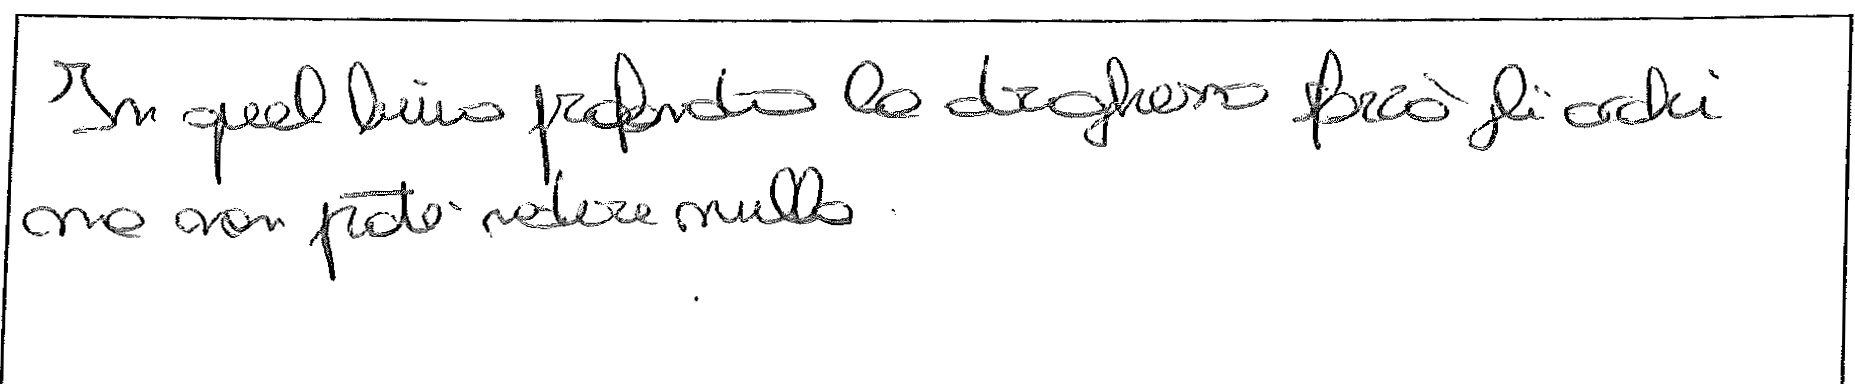 In quel buio profondo lo draghetto forzò gli occhi
ma non poté vedere nulla.